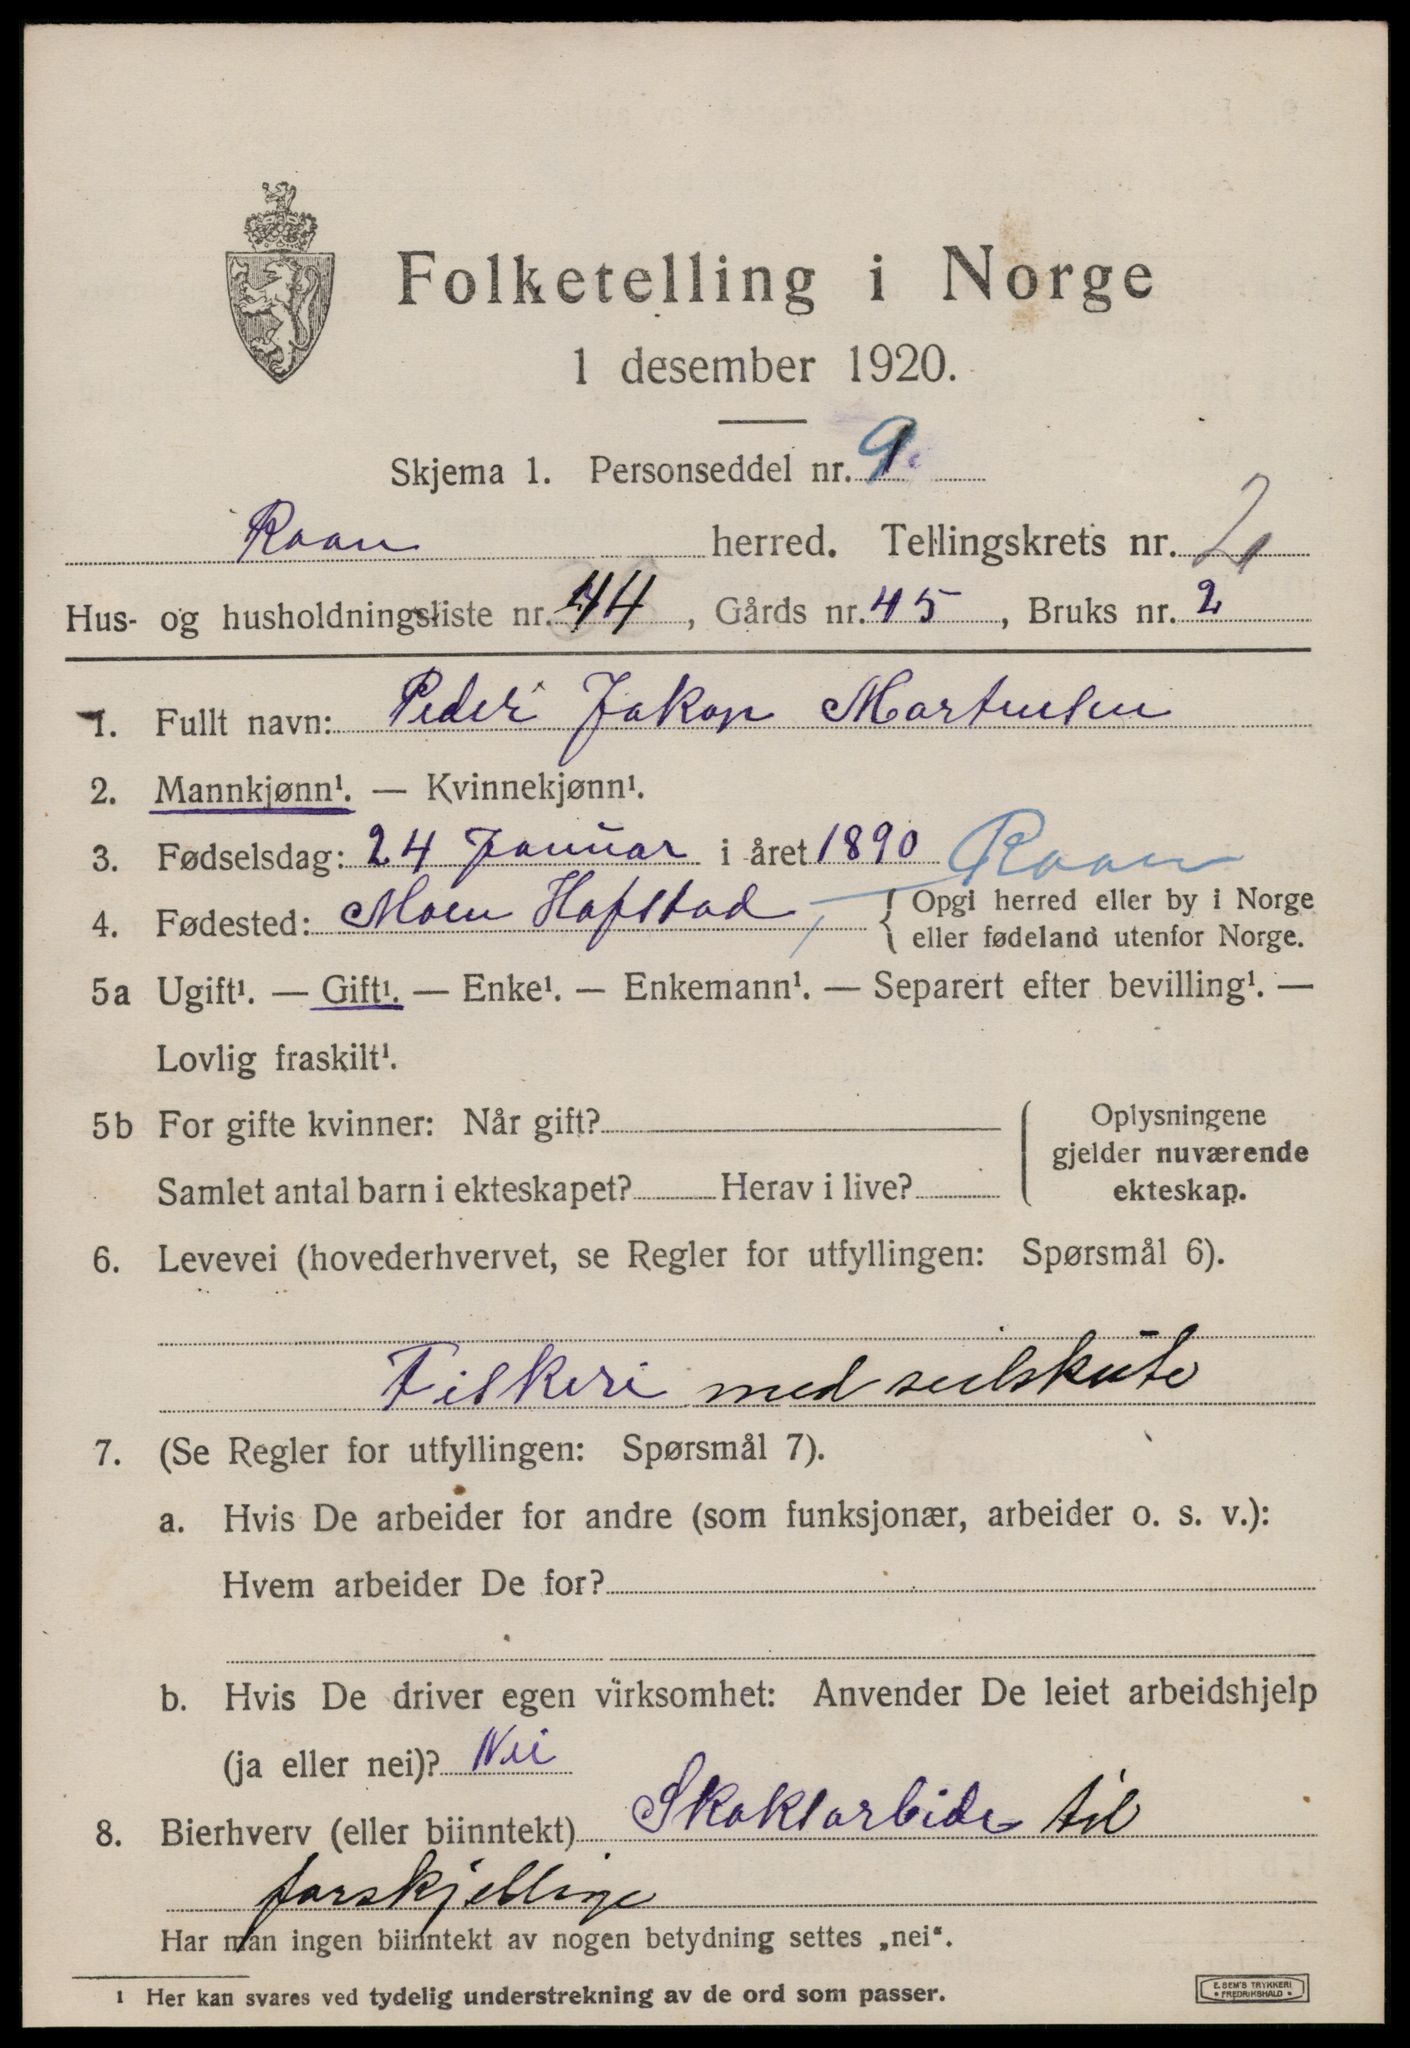 Folketelling i Norge
1 desember 1920.
Skjema 1. Personseddel nr. 9
Roan herred. Tellingskrets nr. 2
Hus- og husholdningsliste nr. 44, Gårds nr. 45, Bruks nr. 2
1. Fullt navn: Peder Jakop Martensen
2. Mannkjønn¹. — Kvinnekjønn¹.
3. Fødselsdag: 24 Januar i året 1890 Roan
4. Fødested: Moen Hofstad { Opgi herred eller by i Norge
eller fødeland utenfor Norge.
5a Ugift¹. — Gift¹. — Enke¹. — Enkemann¹. — Separert efter bevilling¹. —
Lovlig fraskilt¹.
5b For gifte kvinner: Når gift?
Samlet antal barn i ekteskapet? Herav i live?
{ Oplysningene
gjelder nuværende
ekteskap.
6. Levevei (hovederhvervet, se Regler for utfyllingen: Spørsmål 6).
Fiskeri med seilskute
7. (Se Regler for utfyllingen: Spørsmål 7).
a. Hvis De arbeider for andre (som funksjonær, arbeider o. s. v.):
Hvem arbeider De for?
b. Hvis De driver egen virksomhet: Anvender De leiet arbeidshjelp
(ja eller nei)? Nei
8. Bierhverv (eller biinntekt) til
forskjellige
Har man ingen biinntekt av nogen betydning settes „nei“.
1 Her kan svares ved tydelig understrekning av de ord som passer.
E. SEM'S TRYKKERI
• FREDRIKSHALD •